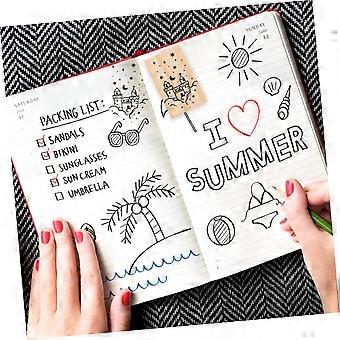 SATURDAY
11
PACKING LIST:
SANDALS
BIKINI
SUNGLASSES
SUN CREAM
UMBRELLA
SUNDAY
12
I
SUMMER